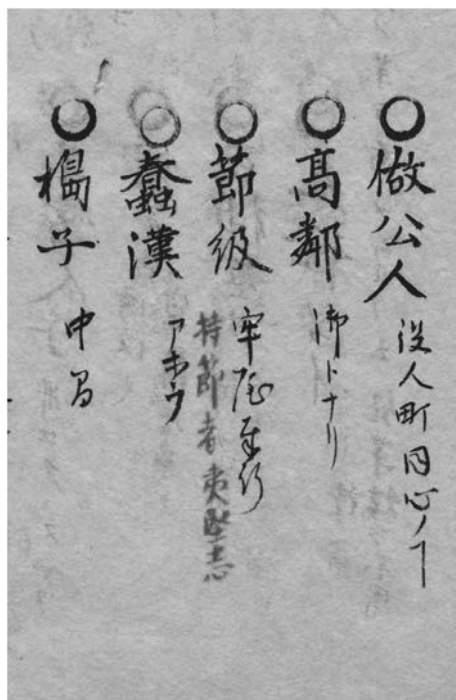 ○做公人 役人町同心ノヿ
○髙鄰 御トナリ
○節級 牢屋奉行
持節者夷堅志
○蠢漢 アホウ
○榻子 中